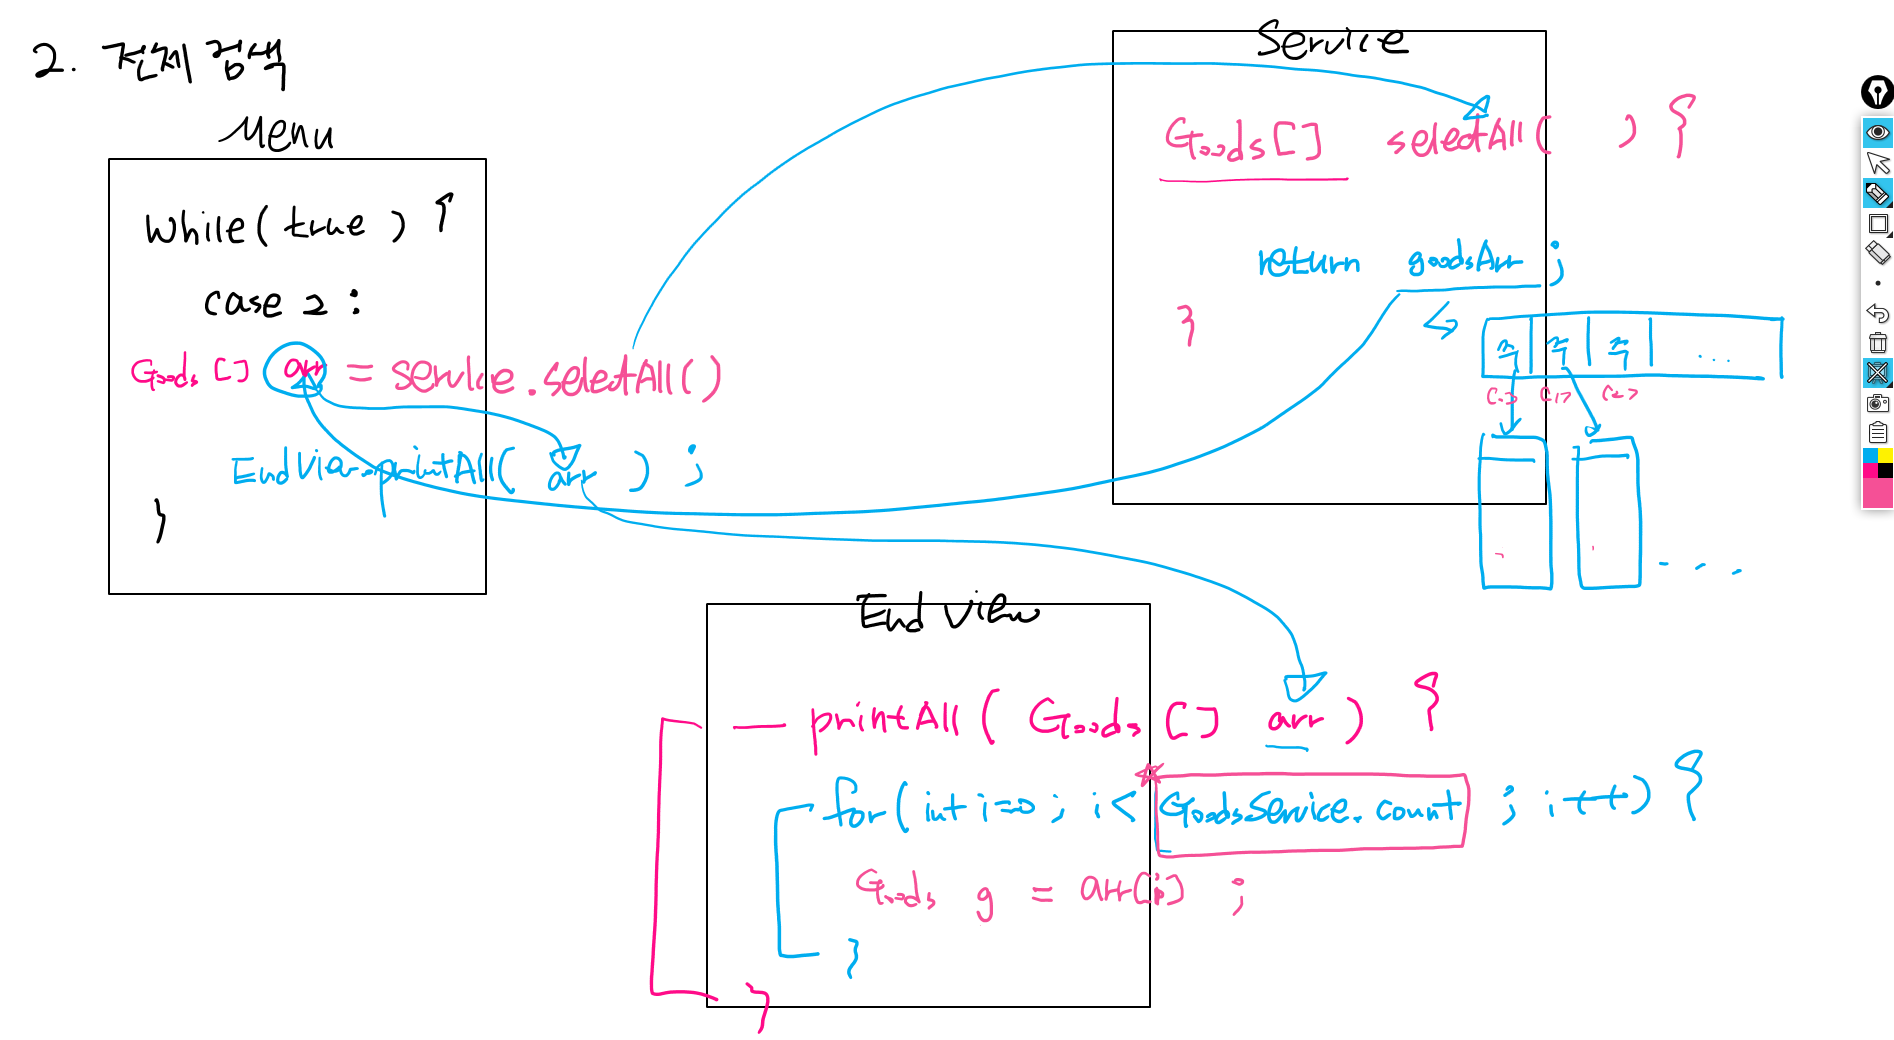 2. 전체 검색
Menu
while(true) {
case 2 :
Goods [] arr = service.selectAll()
EndView.printAll( arr ) ;
}
Service
Goods[] selectAll( ) {
return goodsArr ;
}
주 주 주 ...
[0] [1] [2]
. . .
End View
— printAll( Goods [] arr ) {
for( int i=0 ; i< GoodsService.count ; i++) {
Goods g = arr[i] ;
}
}